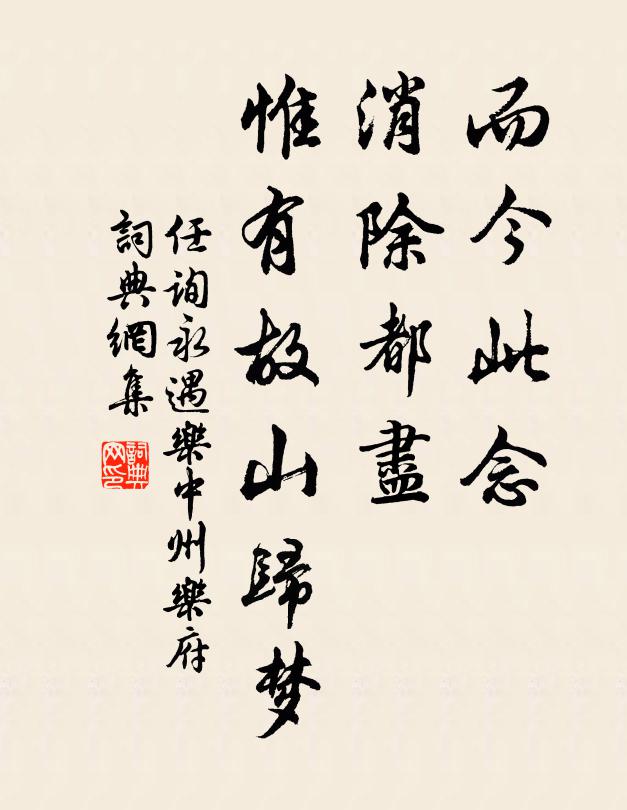 而今此念
消除都盡
惟有故山歸梦
任詢永遇樂中州樂府
詞典網集
詞典
网印